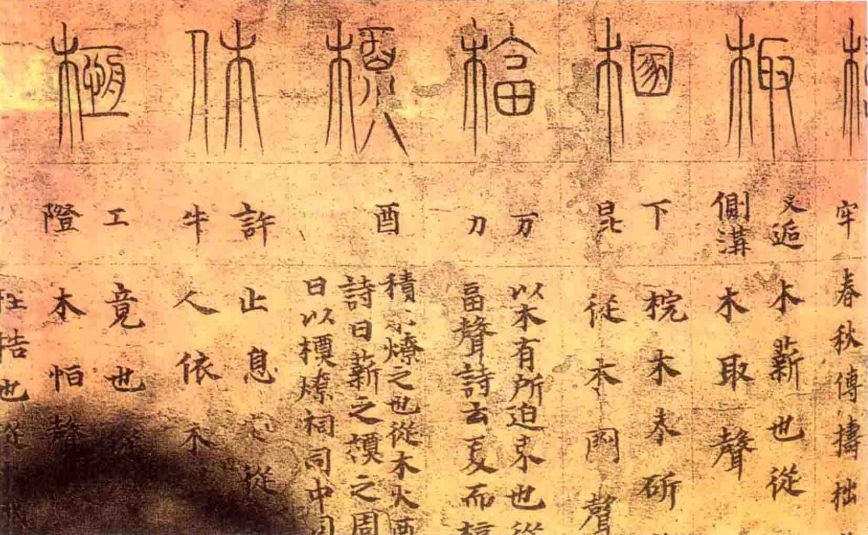 牢
春秋傳擣柮
棷
又逅
側溝
木薪也從
木取聲
棞
下
昆
梡木未斫
從木圂聲
楅
万
刀
以木有所迫束也從
畐聲詩云夏而楅
槱
酉
積火燎之也從木火酉
詩曰薪之槱之周
日以槱燎祠司中司
休
許
牛
止息也從
人依木
𣘦
工
隥
竟也
木恒聲
桔也從